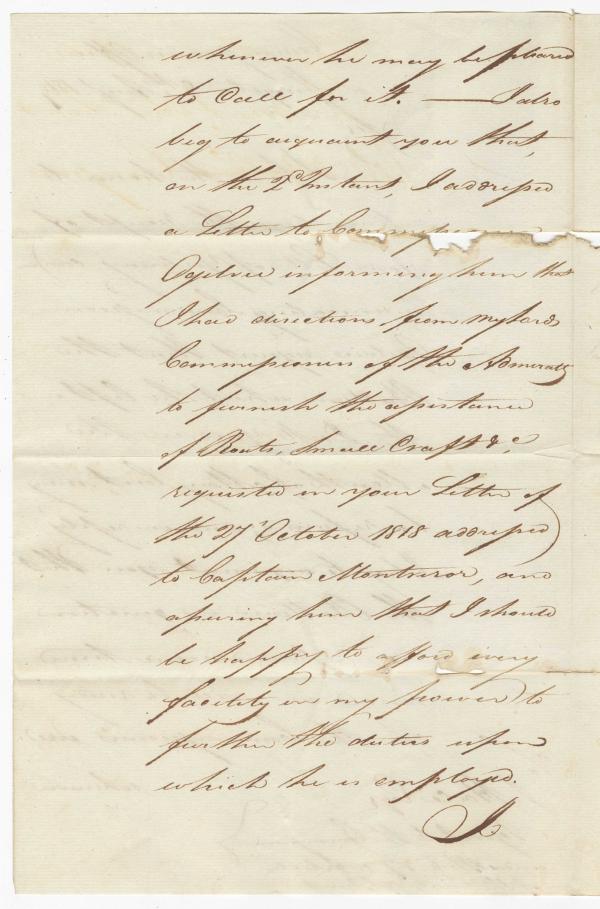 whenever he may be pleased
to Call for it. — I also
beg to acquaint you that,
on the 2d Instant, I addressed
a Letter to Commissioner
Ogilvie informing him that
I had directions from my Lords
Commissioners of the Admiralty
to furnish the assistance
of Boats, Small Craft &c,
requested in your Letter of
the 27th October 1818 addressed
to Captain Montresor, and
assuring him that I should
be happy to afford every
facility in my power to
further the duties upon
which he is employed.
I